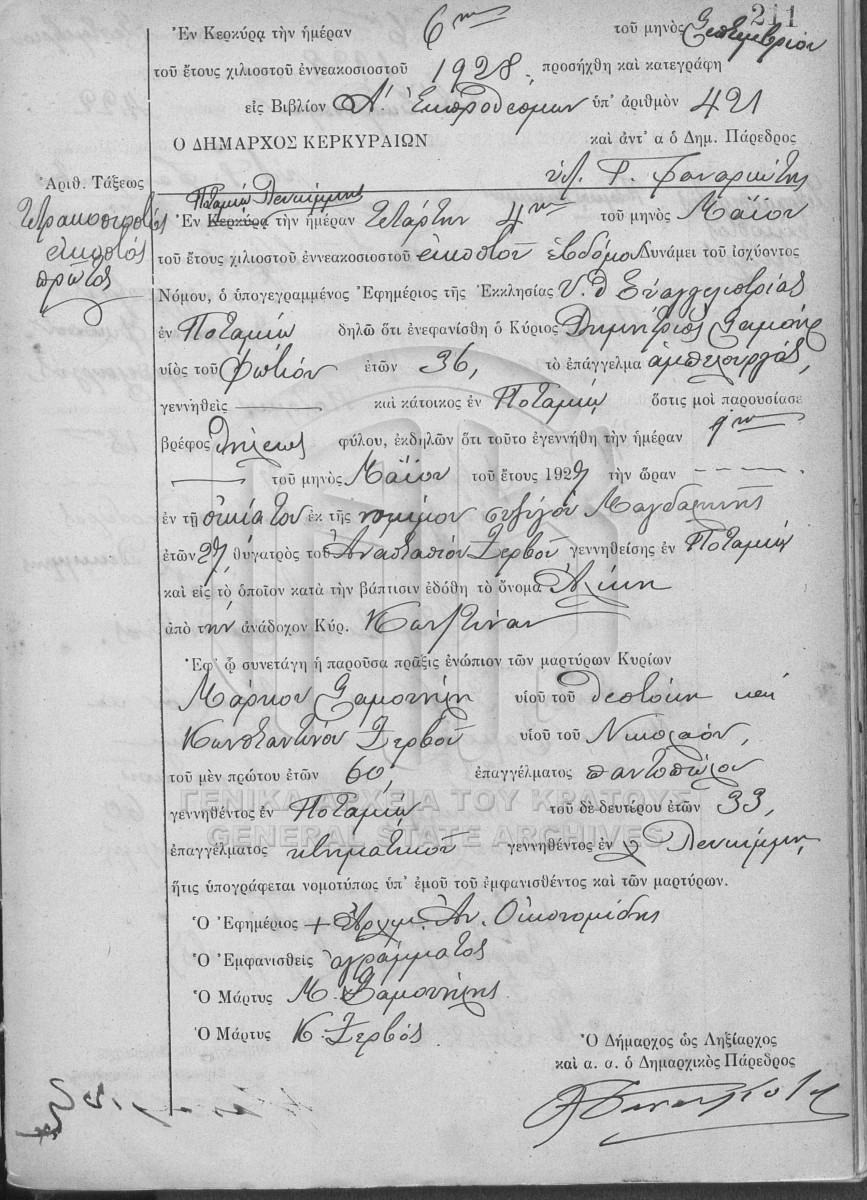 211
Ἐν Κερκύρᾳ τὴν ἡμέραν 6ην τοῦ μηνὸς Σεπτεμβρίου
τοῦ ἔτους χιλιοστοῦ ἐννεακοσιοστοῦ 1928, προσήχθη καὶ κατεγράφη
εἰς Βιβλίον Α. Ἐκπροθέσμων ὑπ' ἀριθμὸν 421
Ο ΔΗΜΑΡΧΟΣ ΚΕΡΚΥΡΑΙΩΝ καὶ ἀντ' α ὁ Δημ. Πάρεδρος
Φαναριώτης
Ἀριθ. Τάξεως
Τετρακοσιοστός
εἰκοστός
πρῶτος
Ποταμίῳ Λευκίμμης
Ἐν Κερκύρᾳ τὴν ἡμέραν Τετάρτην 4ην τοῦ μηνὸς Μαΐου
τοῦ ἔτους χιλιοστοῦ ἐννεακοσιοστοῦ εἰκοστοῦ ἑβδόμου Δυνάμει τοῦ ἰσχύοντος
Νόμου, ὁ ὑπογεγραμμένος Ἐφημέριος τῆς Ἐκκλησίας Υ. Θ Εὐαγγελιστρίας
ἐν Ποταμίῳ δηλῶ ὅτι ἐνεφανίσθη ὁ Κύριος Δημήτριος
υἱὸς τοῦ Φωτίου ἐτῶν 36, τὸ ἐπάγγελμα ἀμπελουργός,
γεννηθεὶς καὶ κάτοικος ἐν Ποταμίῳ ὅστις μοὶ παρουσίασε
βρέφος θήλεως φύλου, ἐκδηλῶν ὅτι τοῦτο ἐγεννήθη τὴν ἡμέραν
τοῦ μηνὸς Μαΐου τοῦ ἔτους 1927 τὴν ὥραν
ἐν τῇ οἰκίᾳ του ἐκ τῆς νομίμου συζύγου Μαγδαληνῆς
ἐτῶν 27, θυγατρὸς τοῦ Ἀναστασίου Ζερβοῦ γεννηθείσης ἐν Ποταμίῳ
καὶ εἰς τὸ ὁποῖον κατὰ τὴν βάπτισιν ἐδόθη τὸ ὄνομα Ἀλίκη
ἀπὸ τὴν ἀνάδοχον Κύρ.
Ἐφ' ᾧ συνετάγη ἡ παροῦσα πρᾶξις ἐνώπιον τῶν μαρτύρων Κυρίων
Μάρκου Σαμοΐλη υἱοῦ τοῦ Θεοτόκη καὶ
Κωνσταντίνου Ζερβοῦ υἱοῦ τοῦ Νικολάου,
τοῦ μὲν πρώτου ἐτῶν 60, ἐπαγγέλματος παντοπώλου
γεννηθέντος ἐν Ποταμίῳ τοῦ δὲ δευτέρου ἐτῶν 33,
ἐπαγγέλματος κτηματικοῦ γεννηθέντος ἐν Λευκίμμῃ,
ἥτις ὑπογράφεται νομοτύπως ὑπ' ἐμοῦ τοῦ ἐμφανισθέντος καὶ τῶν μαρτύρων.
Ὁ Ἐφημέριος + Ἀρχιμ. Ἀν. Οἰκονομίδης
Ὁ Ἐμφανισθεὶς ἀγράμματος
Ὁ Μάρτυς Μ.
Ὁ Μάρτυς Κ. Ζερβός
Ὁ Δήμαρχος ὡς Ληξίαρχος
καὶ α. α. ὁ Δημαρχικὸς Πάρεδρος
ΓΕΝΙΚΑ ΑΡΧΕΙΑ ΤΟΥ ΚΡΑΤΟΥΣ
GENERAL STATE ARCHIVES